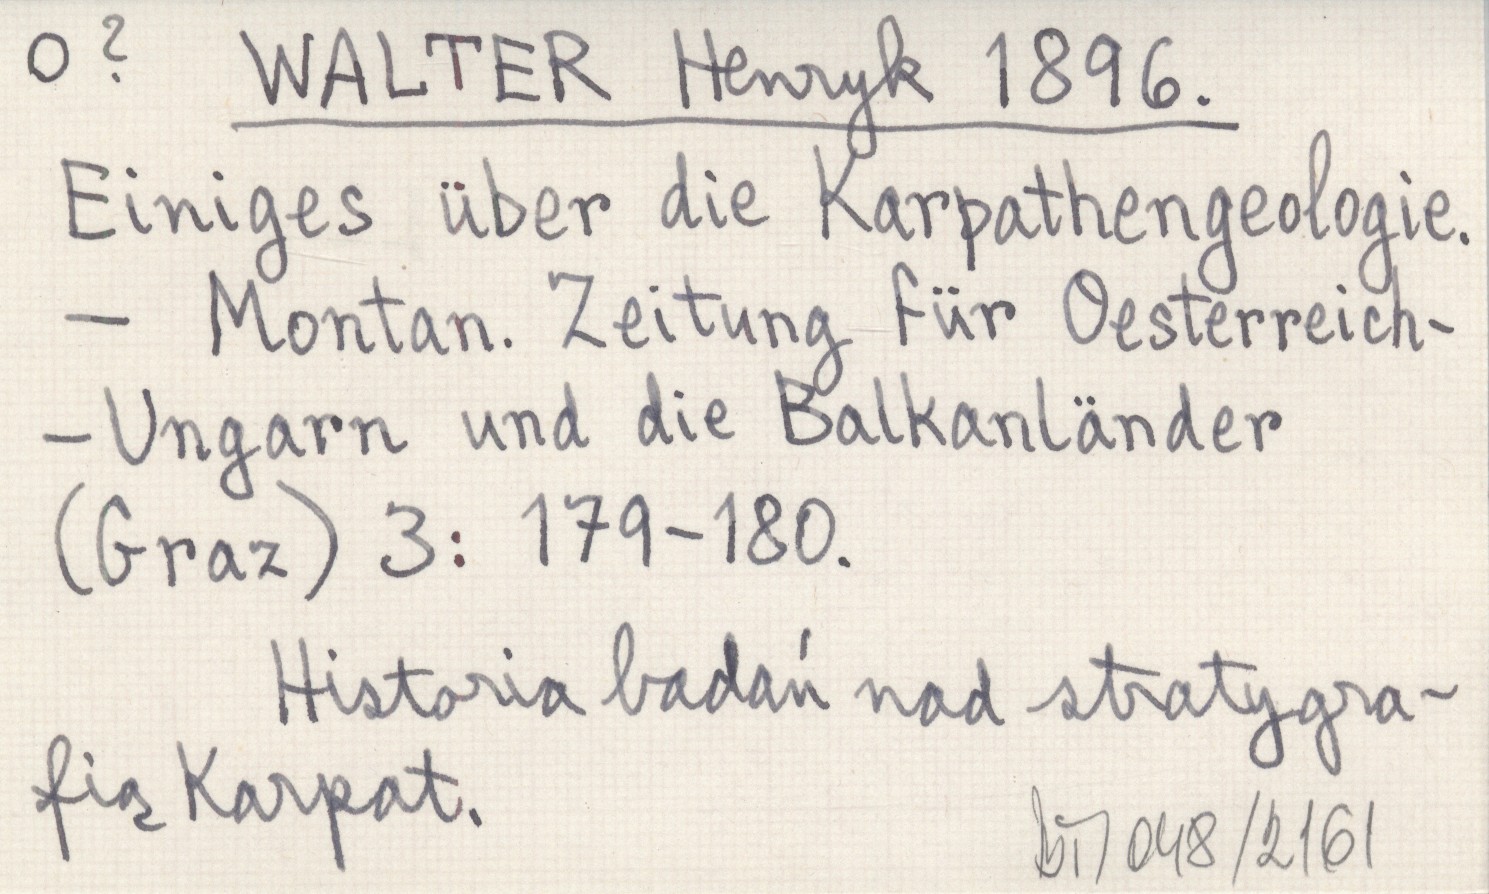 O? WALTER Henryk 1896.
Einiges über die Karpathengeologie.
— Montan. Zeitung für Oesterreich-
-Ungarn und die Balkanländer
(Graz) 3: 179-180.
Historia badań nad stratygra-
fią Karpat.
048/2161